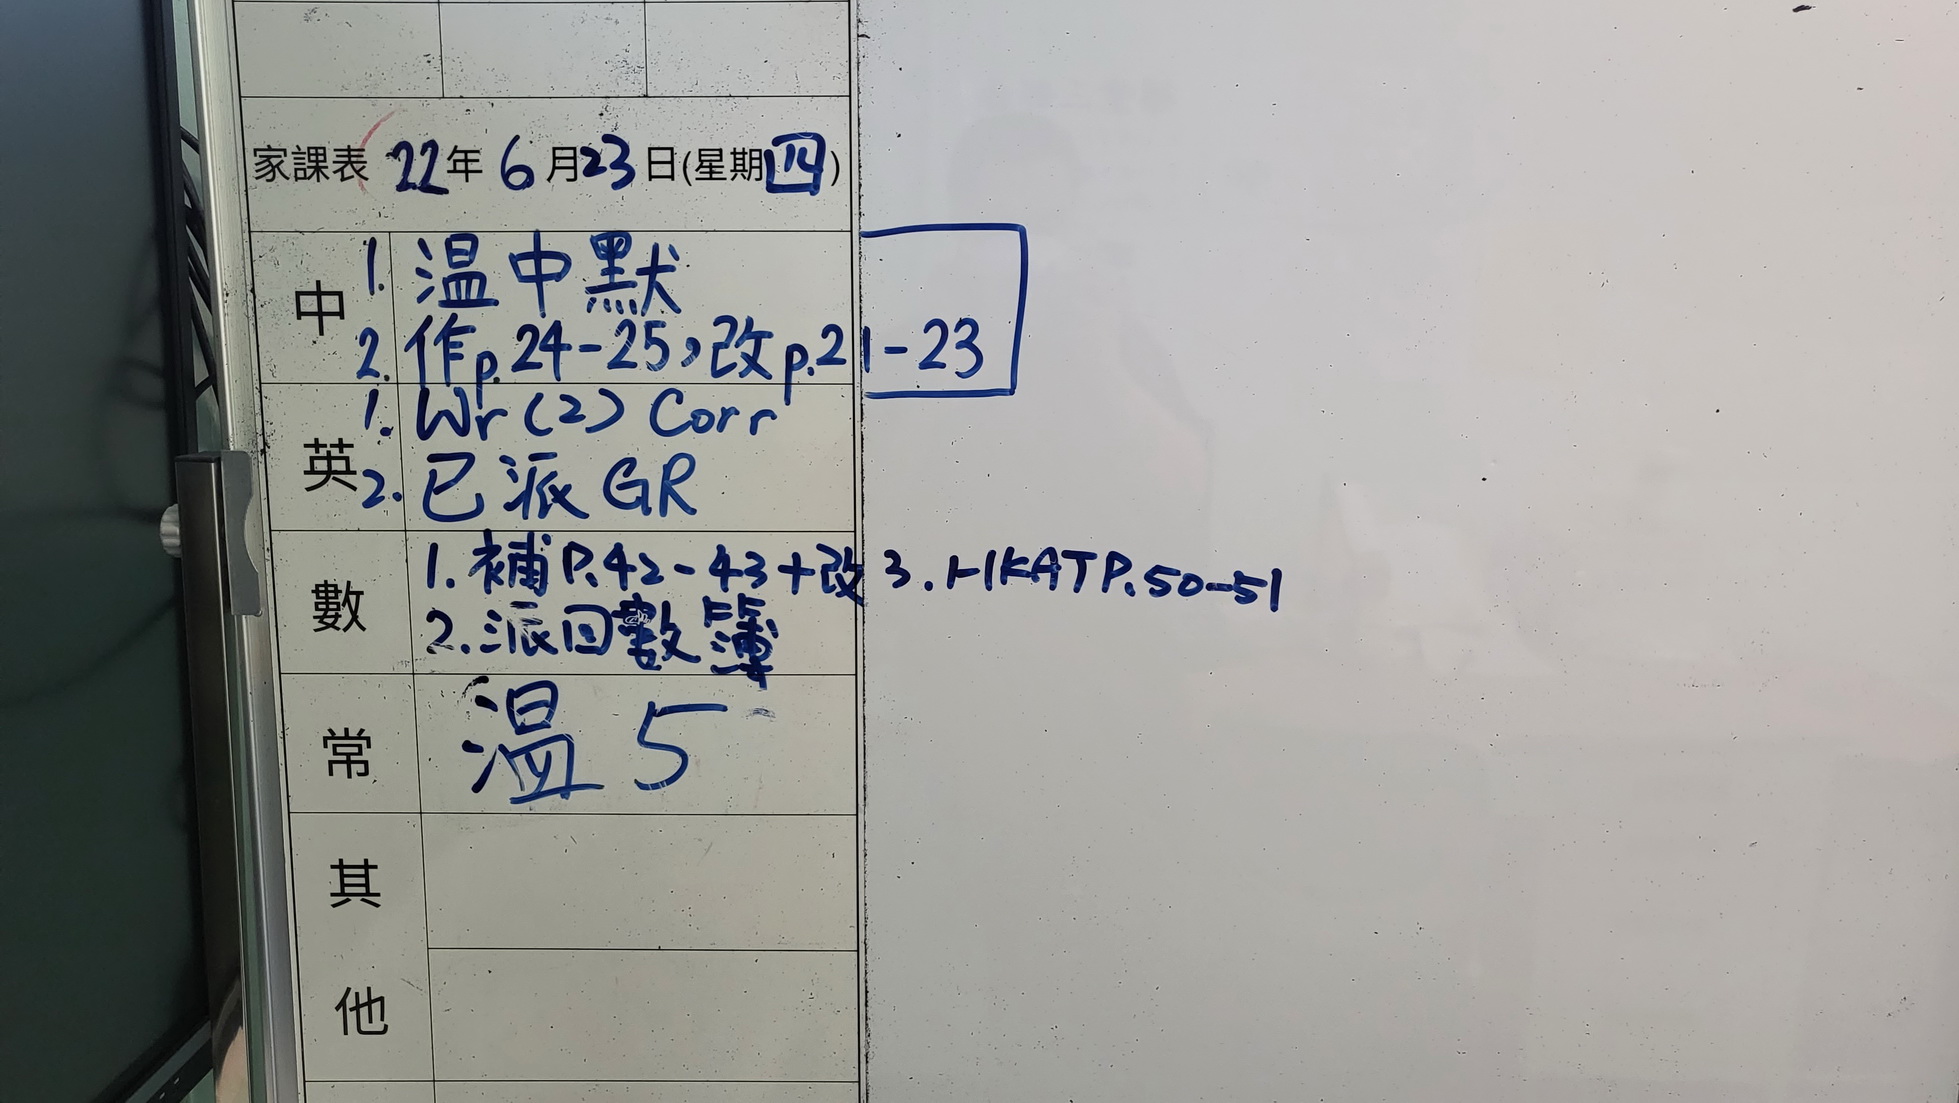 家課表 22年 6月23日(星期四)
中
1. 温中默
2. 作p.24-25，改p.21-23
英
1. Wr(2) Corr
2. 已派GR
數
1. 補P.42-43+改 3. HKAT P.50-51
2. 派回數簿
常
温 5
其
他